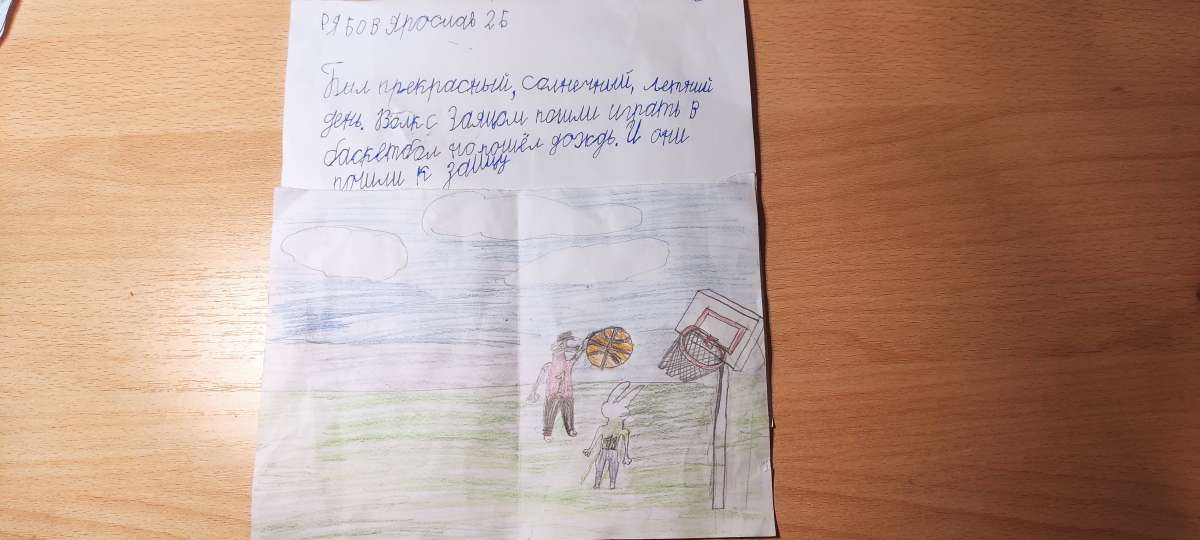 Рябов Ярослав 2Б
Был прекрасный, солнечный, летний
день. Волк с Заяцом пошли играть в
баскетбол но пошёл дождь. И они
пошли к зайцу